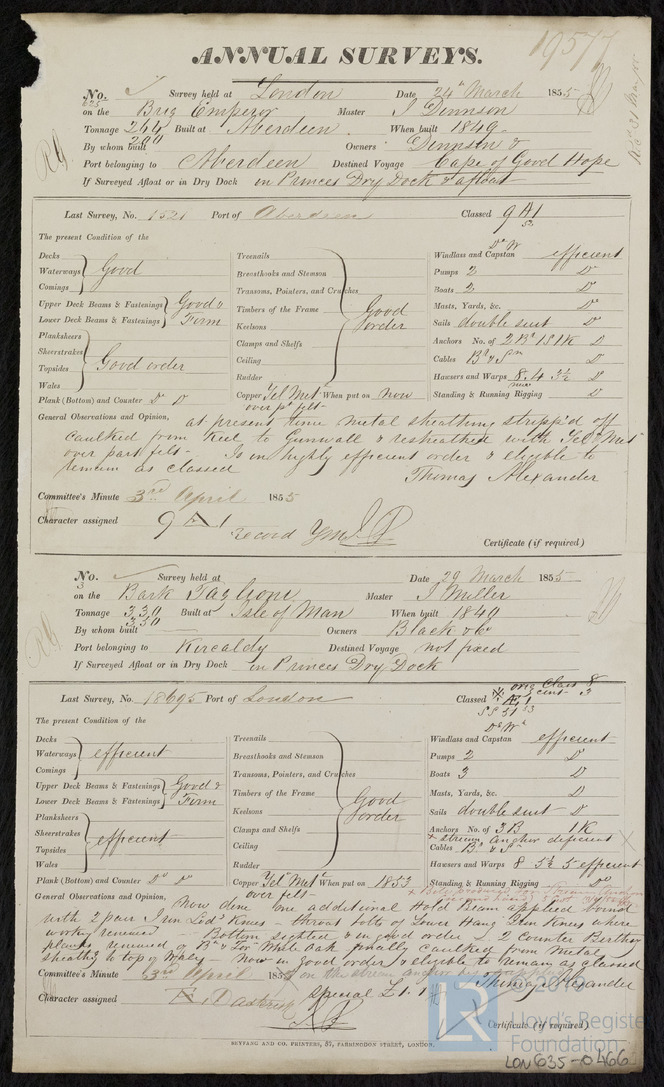 19577
ANNUAL SURVEYS.
No. Survey held at London Date 24th March 1855
on the Brig Emperor Master J Dennson
Tonnage 264 Built at Aberdeen When built 1849
By whom built Owners Dennson &
Port belonging to Aberdeen Destined Voyage Cape of Good Hope
If Surveyed Afloat or in Dry Dock in Princes Dry Dock & afloat
Last Survey, No. 1521 Port of Aberdeen Classed 9 A 1
The present Condition of the
Decks
Waterways Good
Comings
Upper Deck Beams & Fastenings Good &
Lower Deck Beams & Fastenings Firm
Planksheers
Sheerstrakes
Topsides Good order
Wales
Plank (Bottom) and Counter Do Do
Treenails
Breasthooks and Stemson
Transoms, Pointers, and Crutches
Timbers of the Frame Good
Keelsons order
Clamps and Shelfs
Ceiling
Rudder
Copper Yel Metl When put on now
over pt felt
Windlass and Capstan efficient
Pumps 2 Do
Boats 2 Do
Masts, Yards, &c. Do
Sails double suit Do
Anchors No. of 2 Br 1 S 1 K Do
Cables Br & Sm Do
Hawsers and Warps 8. 4 3½ Do
Standing & Running Rigging Do
General Observations and Opinion, at present time metal sheathing stripp'd off
caulked from Keel to Gunwall & resheathed with Yel Met
over part felt - Is in highly efficient order & eligible to
remain as classed Thomas Alexander
Committee's Minute 3rd April 1855
Character assigned 9 A 1
record YM
Certificate (if required)
No. Survey held at Date 29 March 1855
on the Bark Taglioni Master J Miller
Tonnage 330 Built at Isle of Man When built 1840
330
By whom built Owners Black & Co
Port belonging to Kircaldy Destined Voyage not fixed
If Surveyed Afloat or in Dry Dock in Princes Dry Dock
Last Survey, No. 18695 Port of London Classed Æ 1
The present Condition of the
Decks
Waterways efficient
Comings
Upper Deck Beams & Fastenings Good &
Lower Deck Beams & Fastenings Firm
Planksheers
Sheerstrakes efficient
Topsides
Wales
Plank (Bottom) and Counter Do Do
Treenails
Breasthooks and Stemson
Transoms, Pointers, and Crutches
Timbers of the Frame Good
Keelsons order
Clamps and Shelfs
Ceiling
Rudder
Copper Yel Metl When put on 1853
over felt
Windlass and Capstan efficient
Pumps 2 Do
Boats 3 Do
Masts, Yards, &c. Do
Sails double suit Do
Anchors No. of 3 B 1 K
& stream anchor deficient
Cables Br & Sm
Hawsers and Warps 8 5½ 5 efficient
Standing & Running Rigging Do
General Observations and Opinion, Now done one additional Hold Beam applied bound
with 2 pair Iron Led Knees throat bolts of Lower Hang Iron Knees where
working renewed Bottom sighted & in good order 2 Counter Berthg
planks renewed of Bn & For White Oak finally caulked from metal
sheathg to top of Wales - now in good order & eligible to remain as classed
on the stream anchor being supplied Thomas Alexander
Committee's Minute 3rd April 1855
Character assigned Special £1.1
Certificate (if required)
SEYFANG AND CO. PRINTERS, 57, FARRINGDON STREET, LONDON.
LR
© 2019
Lloyd's Register
Foundation
LON635-0466